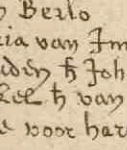 n Berlo
ia van Im
iden h̄ Joh
kel h van
e voor har